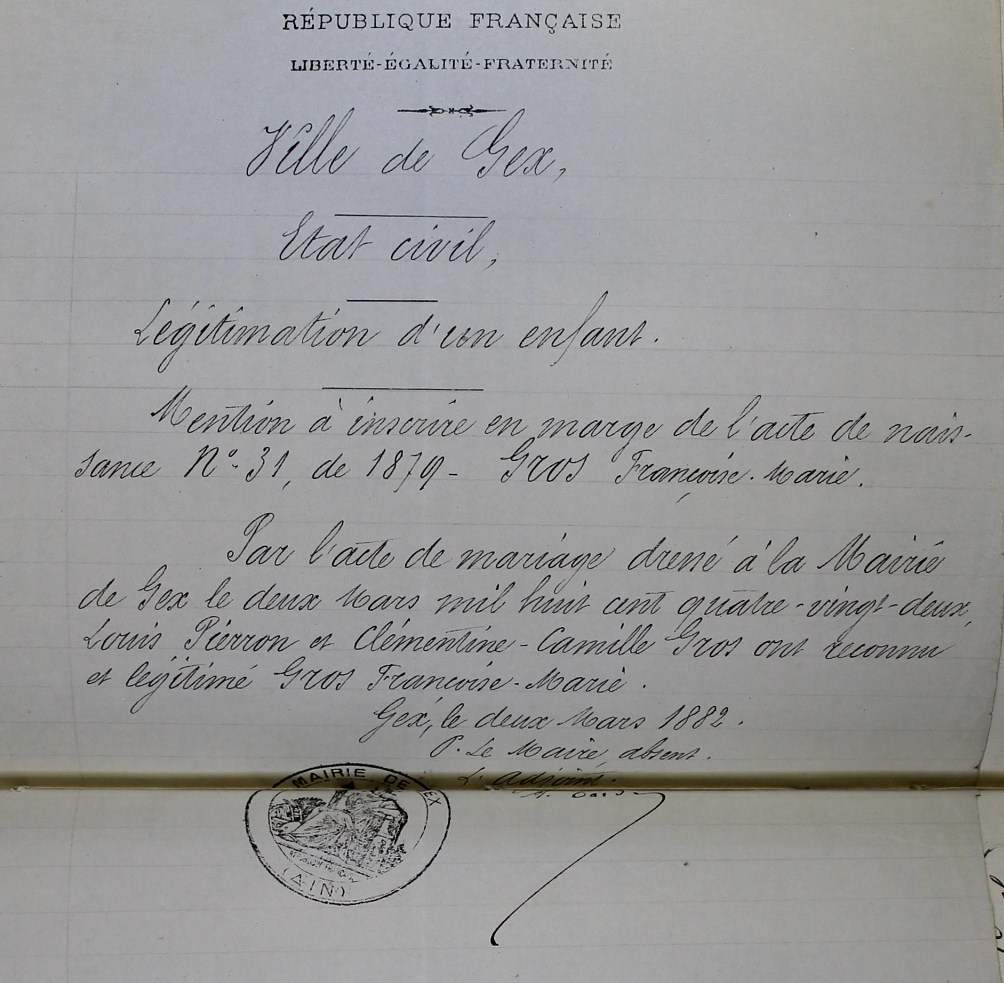 RÉPUBLIQUE FRANÇAISE
LIBERTÉ-ÉGALITÉ-FRATERNITÉ
Ville de Gex,
Etat civil,
Légitimation d'un enfant.
Mention à inscrire en marge de l'acte de nais-
sance N° 31, de 1879 - Gros Françoise-Marie.
Par l'acte de mariage dressé à la Mairie
de Gex le deux Mars mil huit cent quatre-vingt-deux,
Louis Pierron et Clémentine-Camille Gros ont reconnu
et légitimé Gros Françoise-Marie.
Gex, le deux Mars 1882.
P. Le Maire, absent.
L'adjoint.
MAIRIE DE GEX
(AIN)